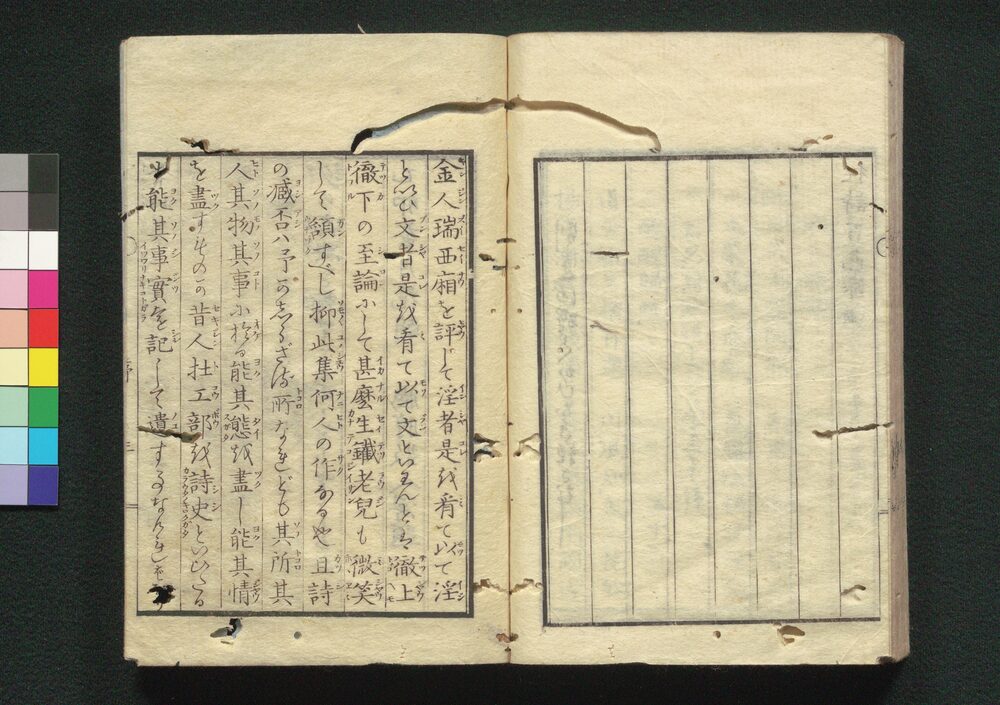 金人瑞西廂を評じて淫者是を看て以て淫
といひ文者是を看て以て文といわんとは徹上
徹下の至論にして甚麼生鐵老兒も微笑
して頷すべし抑此集何人の作なるや且詩
の臧否ハ予がしらざる所なれども其所其
人其物其事に於る能其態を盡し能其情
を盡すものか昔人杜工部を詩史といひたる
も能其事實を記して遺するなんれば